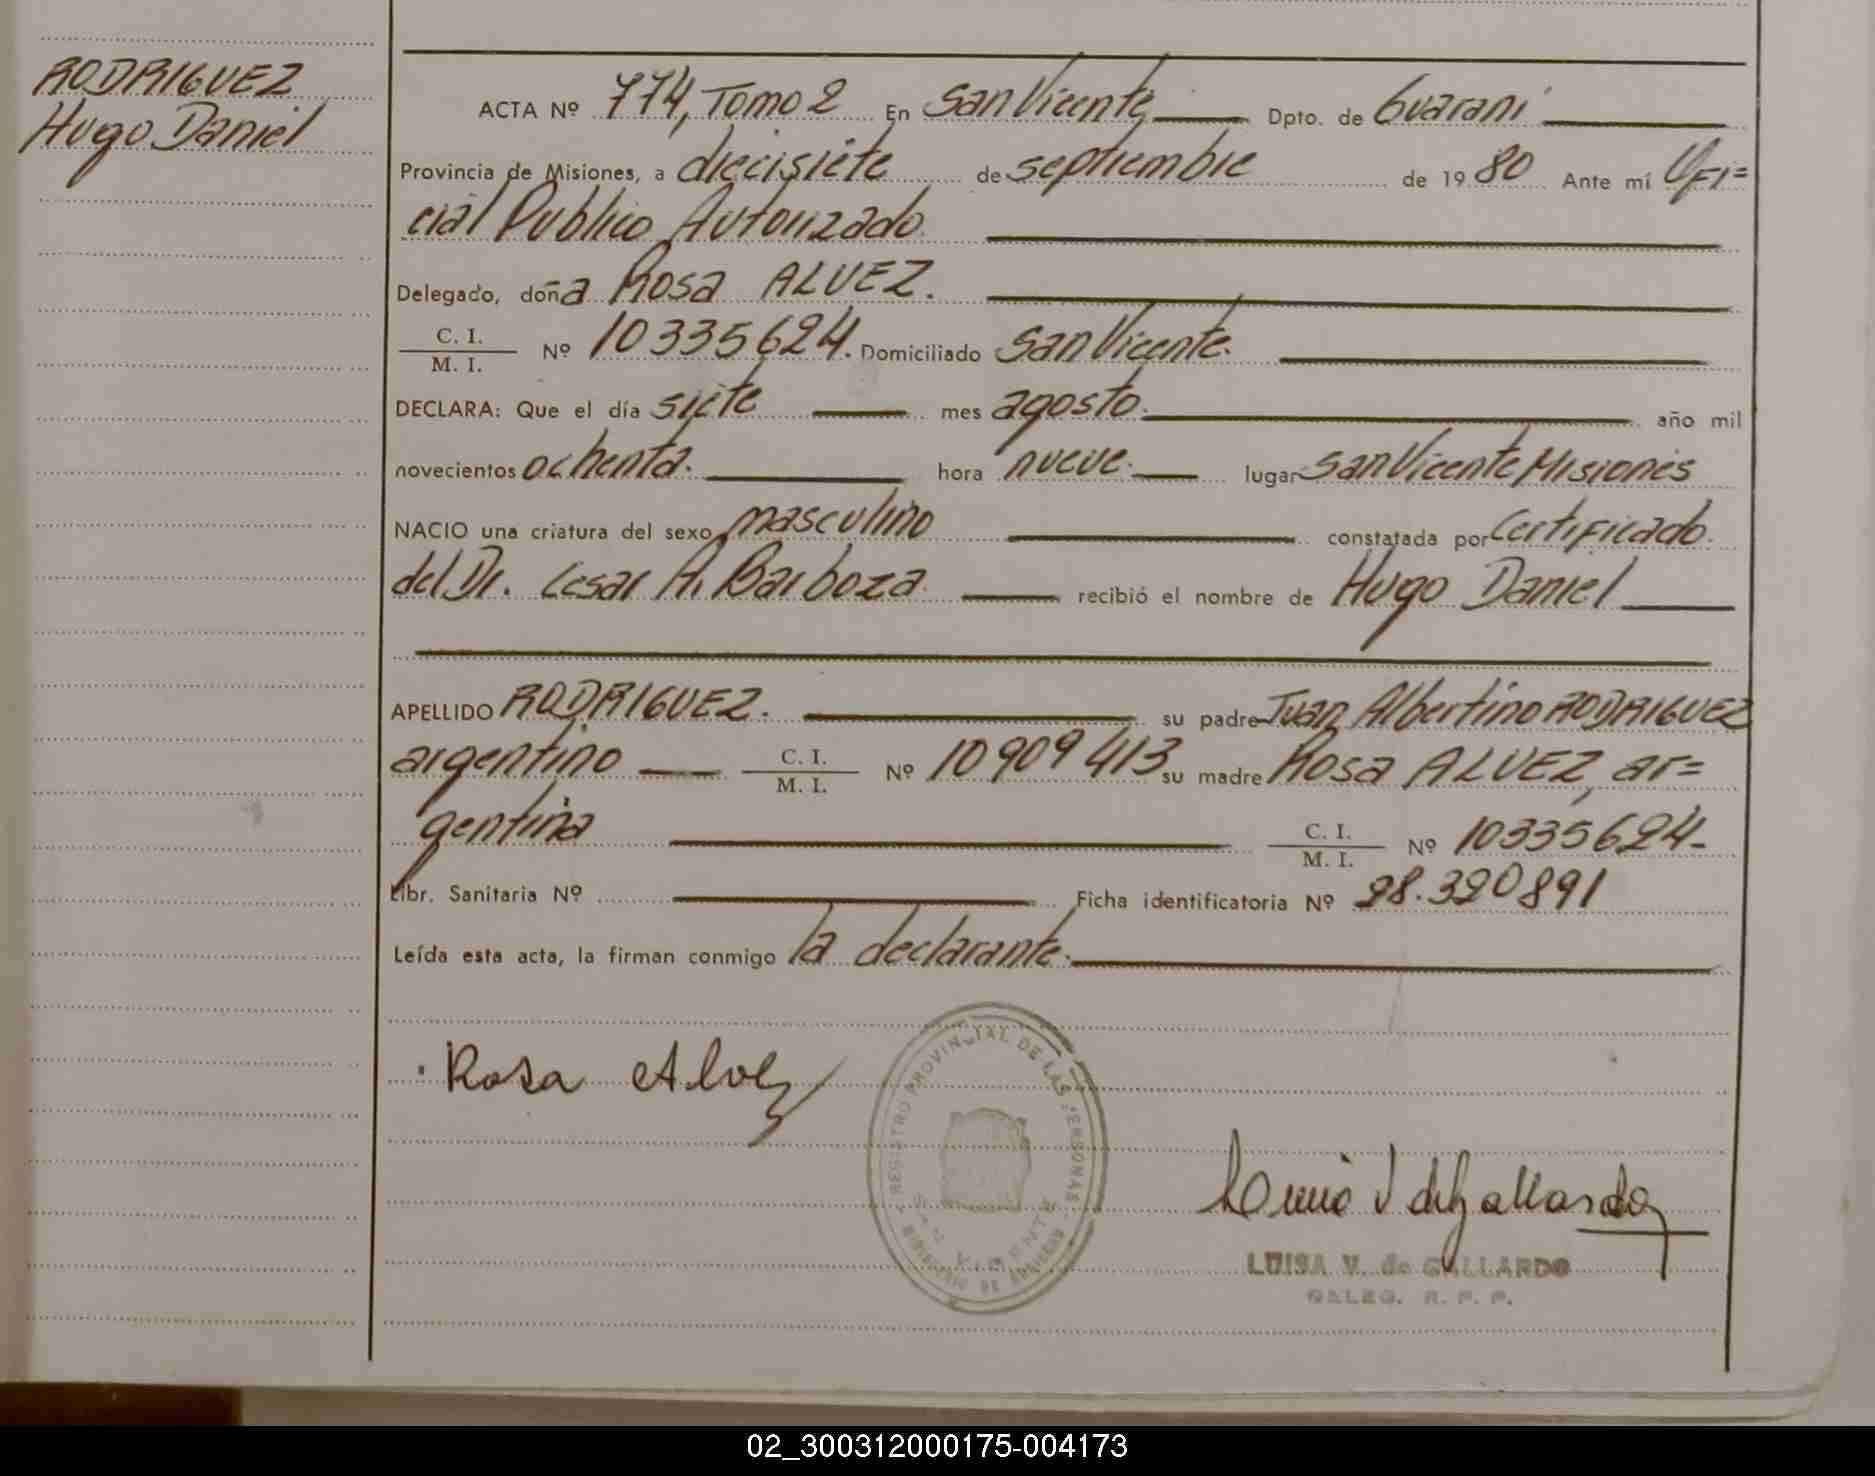 RODRIGUEZ
Hugo Daniel
ACTA Nº 774, Tomo 2 En San Vicente Dpto. de Guarani
Provincia de Misiones, a diecisiete de septiembre de 1980 Ante mí Ofi=
cial Publico Autorizado.
Delegado, doña Rosa ALVEZ.
C. I.
M. I. Nº 10335624. Domiciliado San Vicente.
DECLARA: Que el día siete mes agosto. año mil
novecientos ochenta. hora nueve. lugar San Vicente Misiones
NACIO una criatura del sexo masculino constatada por Certificado
del Dr. Cesar A. Barboza. recibió el nombre de Hugo Daniel
APELLIDO RODRIGUEZ. su padre Juan Albertino RODRIGUEZ
argentino C. I.
M. I. Nº 10909413 su madre Rosa ALVEZ, ar=
gentina C. I.
M. I. Nº 10335624-
Libr. Sanitaria Nº Ficha identificatoria Nº 28.320891
Leída esta acta, la firman conmigo la declarante.
Rosa Alvez
REGISTRO PROVINCIAL DE LAS PERSONAS
SAN VICENTE
MINISTERIO DE
V de Gallardo
LUISA V. de GALLARDO
DELEG. R. P. P.
02_300312000175-004173